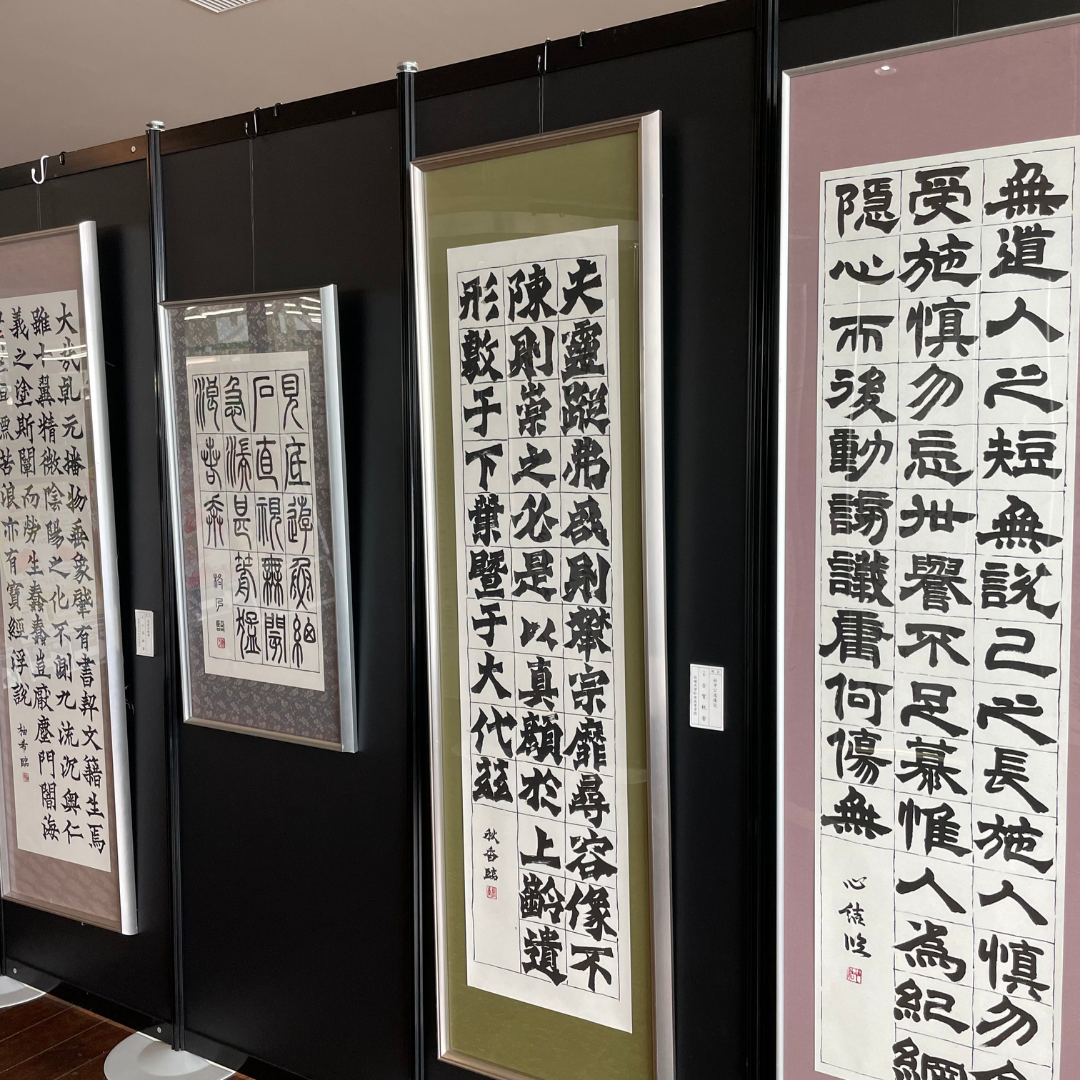 無道人之短無説己之長施人慎勿
受施慎勿忘世譽不足慕惟人為紀綱
隱心而後動謗議庸何傷無
夫靈蹤弗啟則攀宗靡尋容像不
陳則崇之必是以真顏於上齡遺
形敷于下葉暨于大代茲
秋香臨
見底遊魚細
石直視無閡
急湍甚箭猛
浪若奔
大哉乾元播物垂象肇有書契文籍生焉
雖十翼精微陰陽之化不測九流沉奧仁
義之塗斯闡而勞生蠢蠢豈厭塵門闇海
漂苦浪亦有寶經浮說
柚希臨